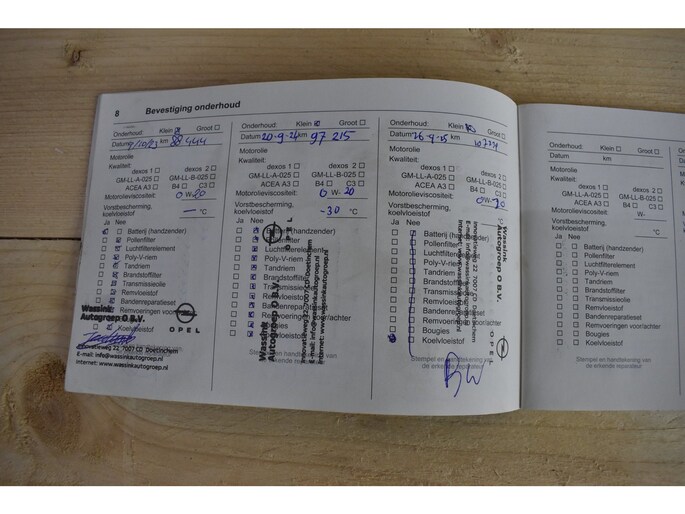 8 Bevestiging onderhoud
Onderhoud: Klein Groot
Datum km
Motorolie
Kwaliteit:
dexos 1 dexos 2
GM-LL-A-025 GM-LL-B-025
ACEA A3 B4 C3
Motorolieviscositeit: 0 W-20
Vorstbescherming,
koelvloeistof °C
Ja Nee
Batterij (handzender)
Pollenfilter
Luchtfilterelement
Poly-V-riem
Tandriem
Brandstoffilter
Transmissieolie
Remvloeistof
Bandenreparatieset
Remvoeringen voor/achter
Koelvloeistof
Wassink
Autogroep O B.V.
OPEL
Innovatieweg 22, 7007 CD Doetinchem
E-mail: info@wassinkautogroep.nl
Internet: www.wassinkautogroep.nl
Onderhoud: Klein Groot
Datum 20-9-24 km 97 215
Motorolie
Kwaliteit:
dexos 1 dexos 2
GM-LL-A-025 GM-LL-B-025
ACEA A3 B4 C3
Motorolieviscositeit: 0 W-20
Vorstbescherming,
koelvloeistof -30 °C
Ja Nee
Batterij (handzender)
Pollenfilter
Luchtfilterelement
Poly-V-riem
Tandriem
Brandstoffilter
Transmissieolie
Remvloeistof
Bandenreparatieset
Remvoeringen voor/achter
Bougies
Koelvloeistof
Wassink
Autogroep O B.V.
OPEL
Onderhoud: Klein Groot
Datum km
Motorolie
Kwaliteit:
dexos 1 dexos 2
GM-LL-A-025 GM-LL-B-025
ACEA A3 B4 C3
Motorolieviscositeit: 0 W-30
Vorstbescherming,
koelvloeistof
Ja Nee
Batterij (handzender)
Pollenfilter
Luchtfilterelement
Poly-V-riem
Tandriem
Brandstoffilter
Transmissieolie
Remvloeistof
Bandenreparatieset
Remvoeringen voor/achter
Bougies
Koelvloeistof
Stempel en handtekening van
de erkende reparateur
Wassink
Autogroep O B.V.
OPEL
Onderhoud: Klein Groot
Datum km
Motorolie
Kwaliteit:
dexos 1 dexos 2
GM-LL-A-025 GM-LL-B-025
ACEA A3 B4 C3
Motorolieviscositeit: W-
Vorstbescherming,
koelvloeistof °C
Ja Nee
Batterij (handzender)
Pollenfilter
Luchtfilterelement
Poly-V-riem
Tandriem
Brandstoffilter
Transmissieolie
Remvloeistof
Bandenreparatieset
Remvoeringen voor/achter
Bougies
Koelvloeistof
Stempel en handtekening van
de erkende reparateur